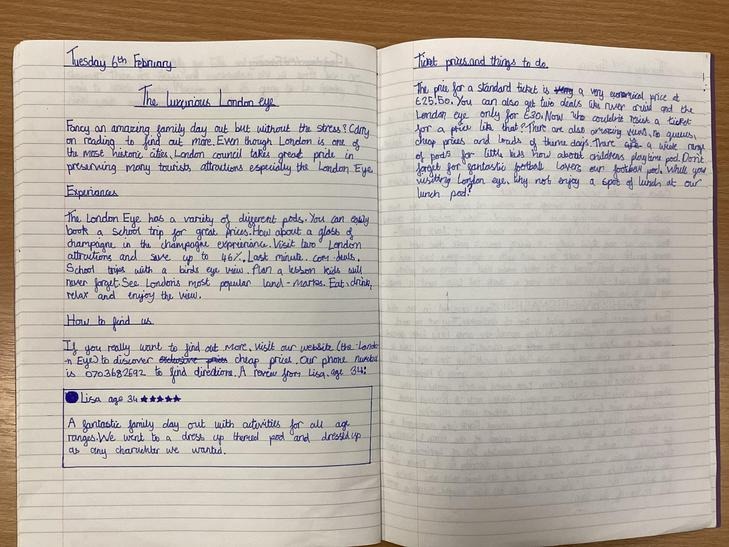 Tuesday 6th February
The luxurious London eye
Fancy an amazing family day out but without the stress? Carry
on reading to find out more. Even though London is one of
the most historic cities. London council takes great pride in
preserving many tourists attractions especially the London Eye.
Experiances
The London Eye has a varity of different pods. You can easily
book a school trip for great prices. How about a glass of
champagne in the champagne exprerience. Visit two London
attractions and save up to 46%. Last minute. com deals.
School trips with a birds eye view. Plan a lesson kids will
never forget. See London's most popular land-marks. Eat, drink,
relax and enjoy the view.
How to find us
If you really want to find out more. Visit our website (the Londo-
n Eye) to discover exclusive prices cheap prices. Our phone number
is 0703682692 to find directions. A review from Lisa, age 34:
Lisa age 34 ★★★★★
A fantastic family day out with activities for all age
ranges. We went to a dress up themed pod and dressed up
as any charachter we wanted.
Ticket prices and things to do.
The price for a standard ticket is very a very economical price at
£25.50. You can also get two deals like river cruise and the
London eye only for £30. Now who couldn't resist a ticket
for a price like that? Thare are also amazing views, no queues,
cheap prices and loads of theme days. There are a wide range
of pods for little kids how about childrens playtime pod. Don't
forget for fantastic football lovers our football pod. While your
visiting London eye, why not enjoy a spot of lunch at our
lunch pod?